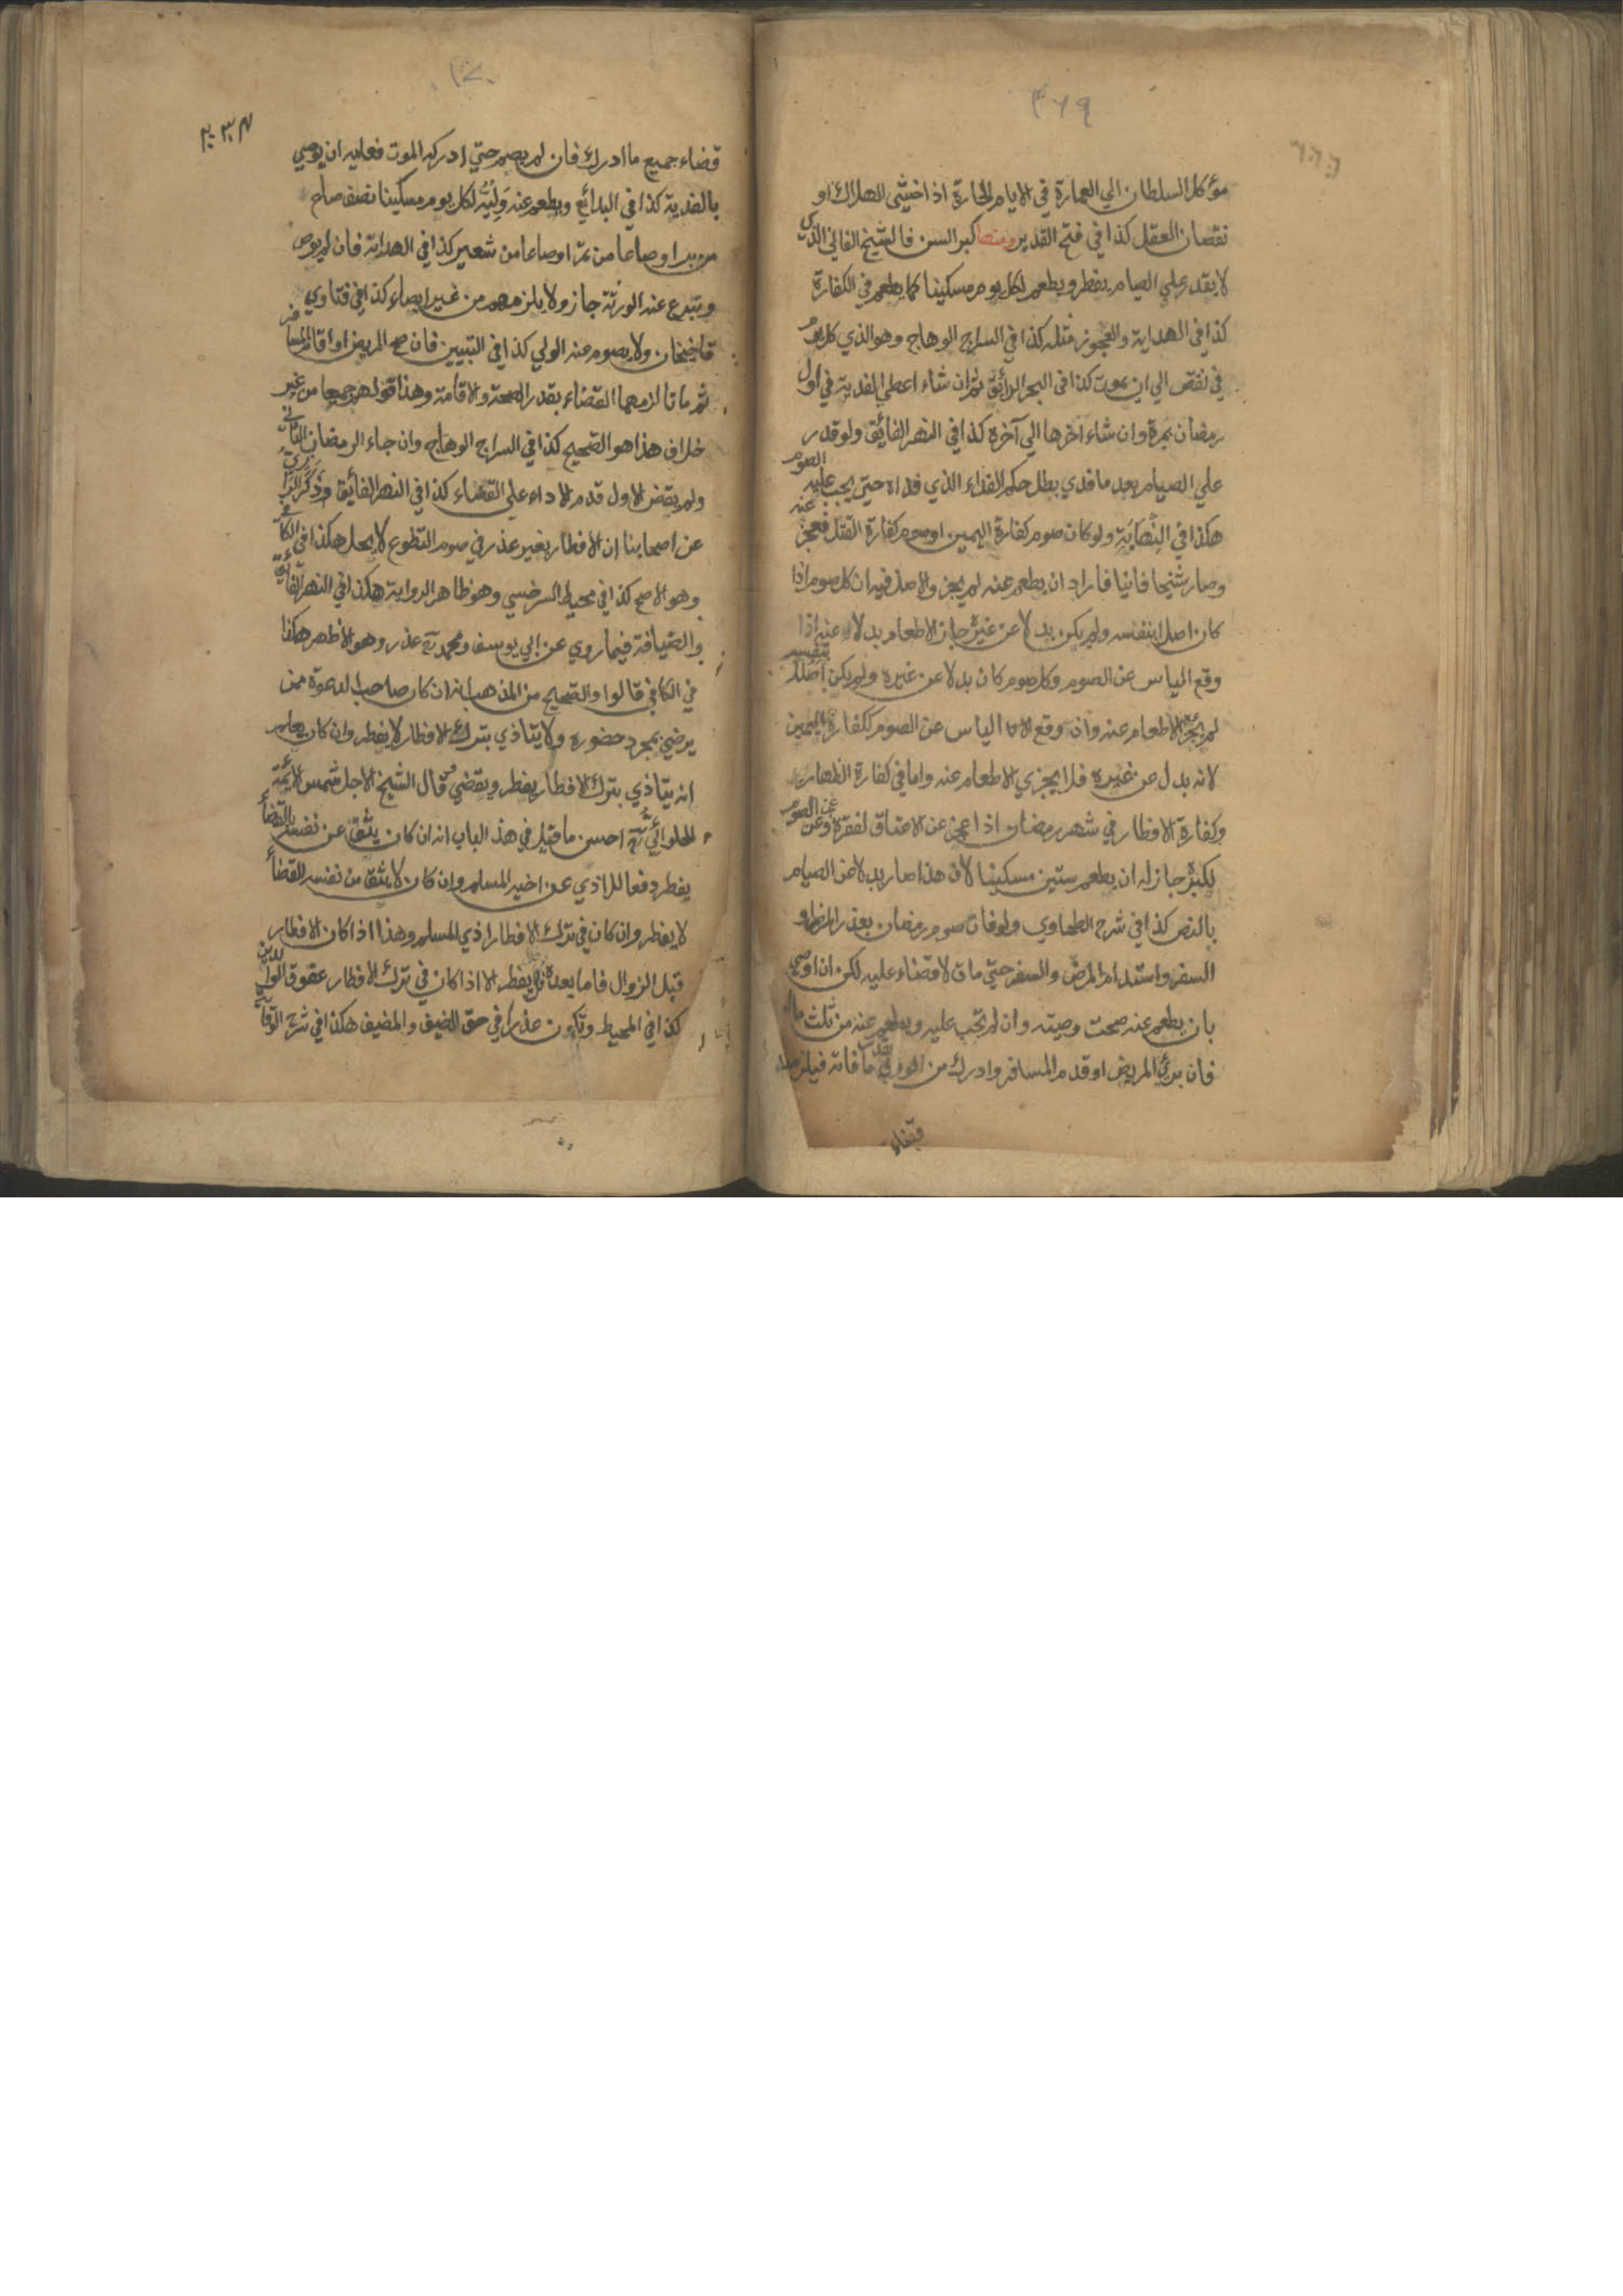 ٣٦٩
مؤكل السلطان الي العمارة في الايام الحارة اذا خشي الهلاك او
نقصان العقل كذا في فتح القدير ومنها كبر السن فالشيخ الفاني الذي
لا يقدر علي الصيام يفطر ويطعم لكل يوم مسكينا كما يطعم في الكفارة
كذا في الهداية والعجوز مثله كذا في السراج الوهاج وهو الذي كل يوم
في نقص الي ان يموت كذا في البحر الرائق ثم ان شاء اعطي الفدية في اول
رمضان بمرة وان شاء اخرها الي آخره كذا في النهر الفائق ولو قدر
علي الصيام بعد ما فدي بطل حكم الفداء الذي فداه حتي يجب عليه الصوم
هكذا في النهاية ولو كان صوم كفارة اليمين او صوم كفارة القتل فعجز عنه
وصار شيخا فانيا فاراد ان يطعم عنه لم يجز والاصل فيه ان كل صوم اذا
كان اصلا بنفسه ولم يكن بدلا عن غيره جاز الاطعام بدلا عنه اذا
وقع الياس عن الصوم وكل صوم كان بدلا عن غيره ولم يكن اصلا بنفسه
لم يجز الاطعام عنه وان وقع الياس عن الصوم ككفارة اليمين
لانه بدل عن غيره فلا يجزي الاطعام عنه واما في كفارة الظهار
وكفارة الافطار في شهر رمضان اذا عجز عن الاعتاق لفقره وعن الصوم
لكبره جاز له ان يطعم ستين مسكينا لان هذا صار بدلا عن الصيام
بالنص كذا في شرح الطحاوي ولو فات صوم رمضان بعذر المرض او
السفر واستدام المرض والسفر حتي مات لا قضاء عليه لكن ان اوصي
بان يطعم عنه صحت وصيته وان لم تجب عليه ويطعم عنه من ثلث ماله
فان برئ المريض او قدم المسافر وادرك من الوقت بقدر ما فاته فيلزمه
قضاء
١٧٠
٢٠٣٤
قضاء جميع ما ادرك فان لم يصم حتي ادركه الموت فعليه ان يوصي
بالفدية كذا في البدائع ويطعم عنه وليه لكل يوم مسكينا نصف صاع
من بر او صاعا من تمر او صاعا من شعير كذا في الهداية فان لم يوص
وتبرع عنه الورثة جاز ولا يلزمهم من غير ايصاء كذا في فتاوي
قاضيخان ولا يصوم عنه الولي كذا في التبيين فان صح المريض او اقام المسافر
ثم ماتا لزمهما القضاء بقدر الصحة والاقامة وهذا قولهم جميعا من غير
خلاف هذا هو الصحيح كذا في السراج الوهاج وان جاء الرمضان الثاني
ولم يقض الاول قدم الاداء علي القضاء كذا في النهر الفائق وذكر الرازي
عن اصحابنا ان الافطار بغير عذر في صوم التطوع لا يحل هكذا في الكافي
وهو الاصح كذا في محيط السرخسي وهو ظاهر الرواية هكذا في النهر الفائق
والضيافة فيما روي عن ابي يوسف ومحمد رح عذر وهو الاظهر هكذا
في الكافي قالوا والصحيح من المذهب انه ان كان صاحب الدعوة ممن
يرضي بمجرد حضوره ولا يتاذي بترك الافطار لا يفطر وان كان يعلم
انه يتاذي بترك الافطار يفطر ويقضي قال الشيخ الاجل شمس الائمة
الحلوائي رح احسن ما قيل في هذا الباب انه ان كان يثق عن نفسه بالقضاء
يفطر دفعا للاذي عن اخيه المسلم وان كان لا يثق من نفسه القضاء
لا يفطر وان كان في ترك الافطار اذي المسلم وهذا اذا كان الافطار
قبل الزوال فاما بعده فلا يفطر الا اذا كان في ترك الافطار عقوق الوالدين
كذا في المحيط وتكون عذرا في حق الضيف والمضيف هكذا في شرح الوقاية